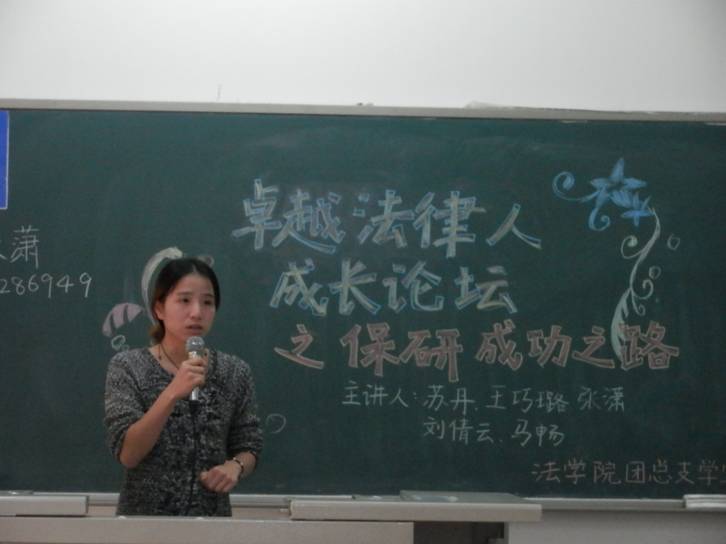 潇
286949
卓越法律人
成长论坛
之保研成功之路
主讲人:苏丹、王巧璐 张潇
刘倩云、马畅
法学院团总支学